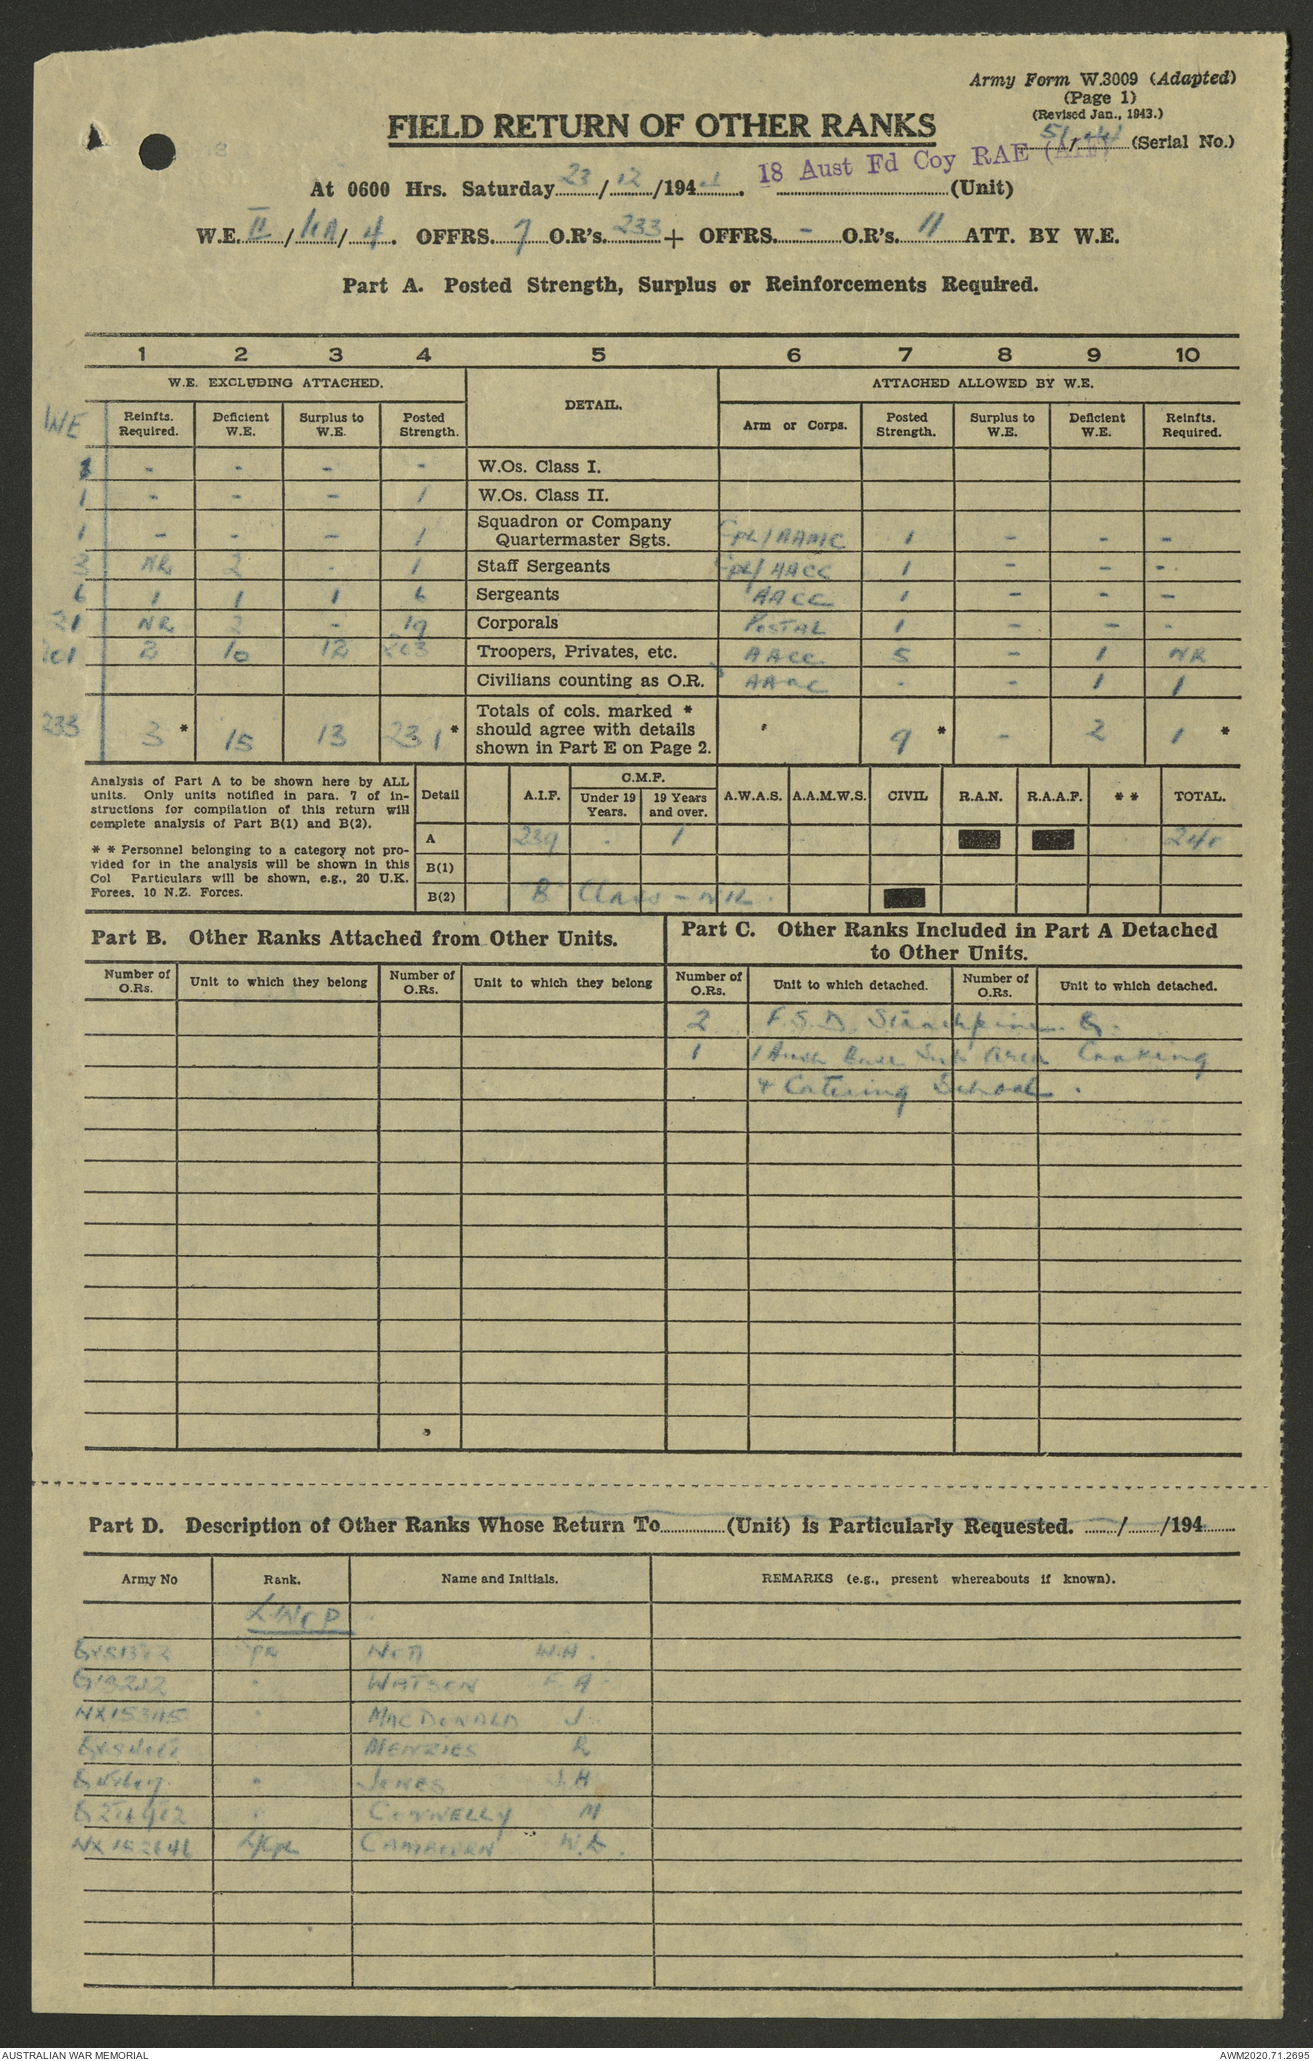 Army Form W.3009 (Adapted)
(Page 1)
(Revised Jan., 1943.)
FIELD RETURN OF OTHER RANKS
51/44 (Serial No.)
At 0600 Hrs. Saturday 23/12/194 . 18 Aust Fd Coy RAE (AIF) (Unit)
W.E. II / / 4 . OFFRS. 7 O.R's. 233 + OFFRS. - O.R's. 11 ATT. BY W.E.
Part A. Posted Strength, Surplus or Reinforcements Required.
1 2 3 4 5 6 7 8 9 10
W.E. EXCLUDING ATTACHED. DETAIL. ATTACHED ALLOWED BY W.E.
WE Reinfts. Required. Deficient W.E. Surplus to W.E. Posted Strength. Arm or Corps. Posted Strength. Surplus to W.E. Deficient W.E. Reinfts. Required.
- - - - W.Os. Class I.
1 - - - 1 W.Os. Class II.
1 - - - 1 Squadron or Company Quartermaster Sgts. Cpl/AAMC 1 - - -
3 NR 2 - 1 Staff Sergeants Cpl/AACC 1 - - -
6 1 1 1 6 Sergeants AACC 1 - - -
21 NR 2 - 19 Corporals POSTAL 1 - - -
201 2 10 12 203 Troopers, Privates, etc. AACC 5 - 1 NR
Civilians counting as O.R. AAMC - - 1 1
233 3 * 15 13 231 * Totals of cols. marked * should agree with details shown in Part E on Page 2. 9 * - 2 1 *
Analysis of Part A to be shown here by ALL units. Only units notified in para. 7 of instructions for compilation of this return will complete analysis of Part B(1) and B(2).
* * Personnel belonging to a category not provided for in the analysis will be shown in this Col Particulars will be shown, e.g., 20 U.K. Forces. 10 N.Z. Forces.
Detail A.I.F. C.M.F. Under 19 Years. 19 Years and over. A.W.A.S. A.A.M.W.S. CIVIL R.A.N. R.A.A.F. * * TOTAL.
A 239 - 1 240
B(1)
B(2) B Class - NIL.
Part B. Other Ranks Attached from Other Units.
Part C. Other Ranks Included in Part A Detached to Other Units.
Number of O.Rs. Unit to which they belong Number of O.Rs. Unit to which they belong Number of O.Rs. Unit to which detached. Number of O.Rs. Unit to which detached.
2 F.S.D. Strathpine. Q.
1 1 Aust Base Sub Area Cooking
& Catering School.
Part D. Description of Other Ranks Whose Return To (Unit) is Particularly Requested. / /194
Army No Rank. Name and Initials. REMARKS (e.g., present whereabouts if known).
W.H.
WATSON F A
MACDONALD J
MENZIES R
JONES J.H
CONNELLY M
L/Cpl W.
AUSTRALIAN WAR MEMORIAL AWM2020.71.2695